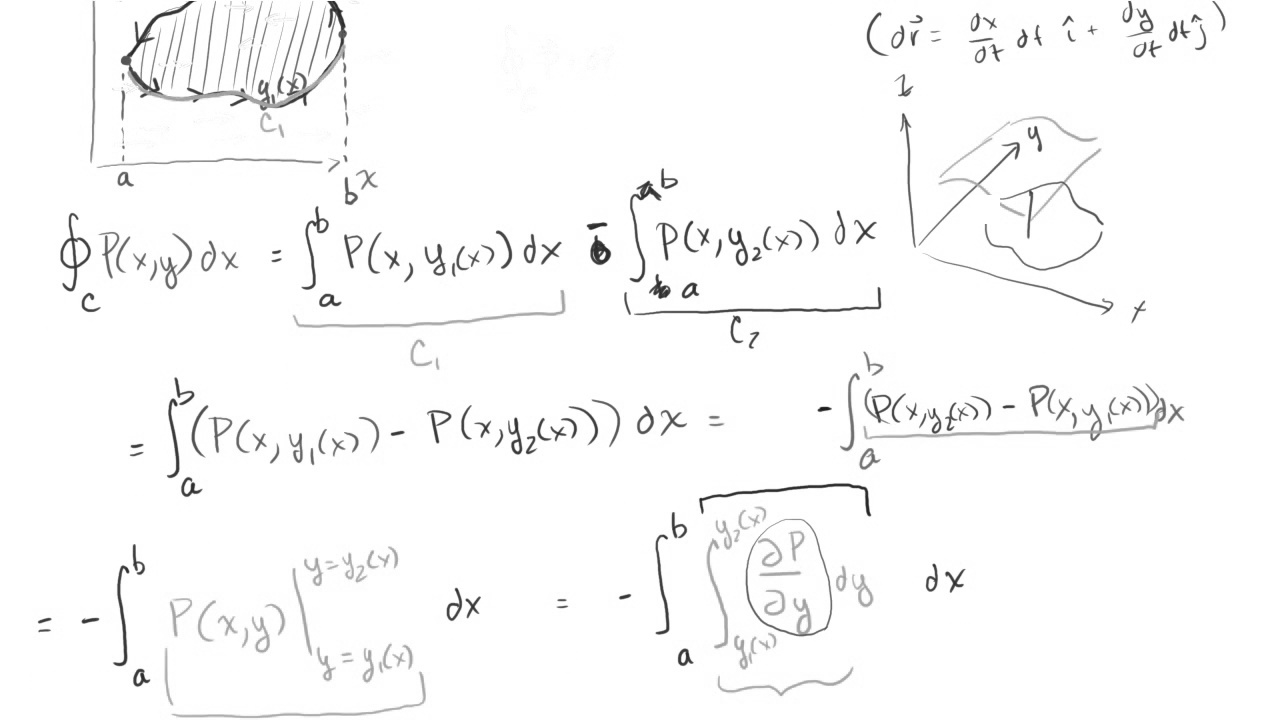 (dr⃗ = dx/dt dt î + dy/dt dt ĵ)
y₁(x)
C₁
a
b x
z
y
x
∮_C P(x,y) dx = ∫_a^b P(x, y₁(x)) dx - ∫_a^b P(x, y₂(x)) dx
C₁
C₂
= ∫_a^b (P(x, y₁(x)) - P(x, y₂(x))) dx = - ∫_a^b (P(x, y₂(x)) - P(x, y₁(x))) dx
= - ∫_a^b P(x,y) |_{y = y₁(x)}^{y = y₂(x)} dx = - ∫_a^b ∫_{y₁(x)}^{y₂(x)} ∂P/∂y dy dx